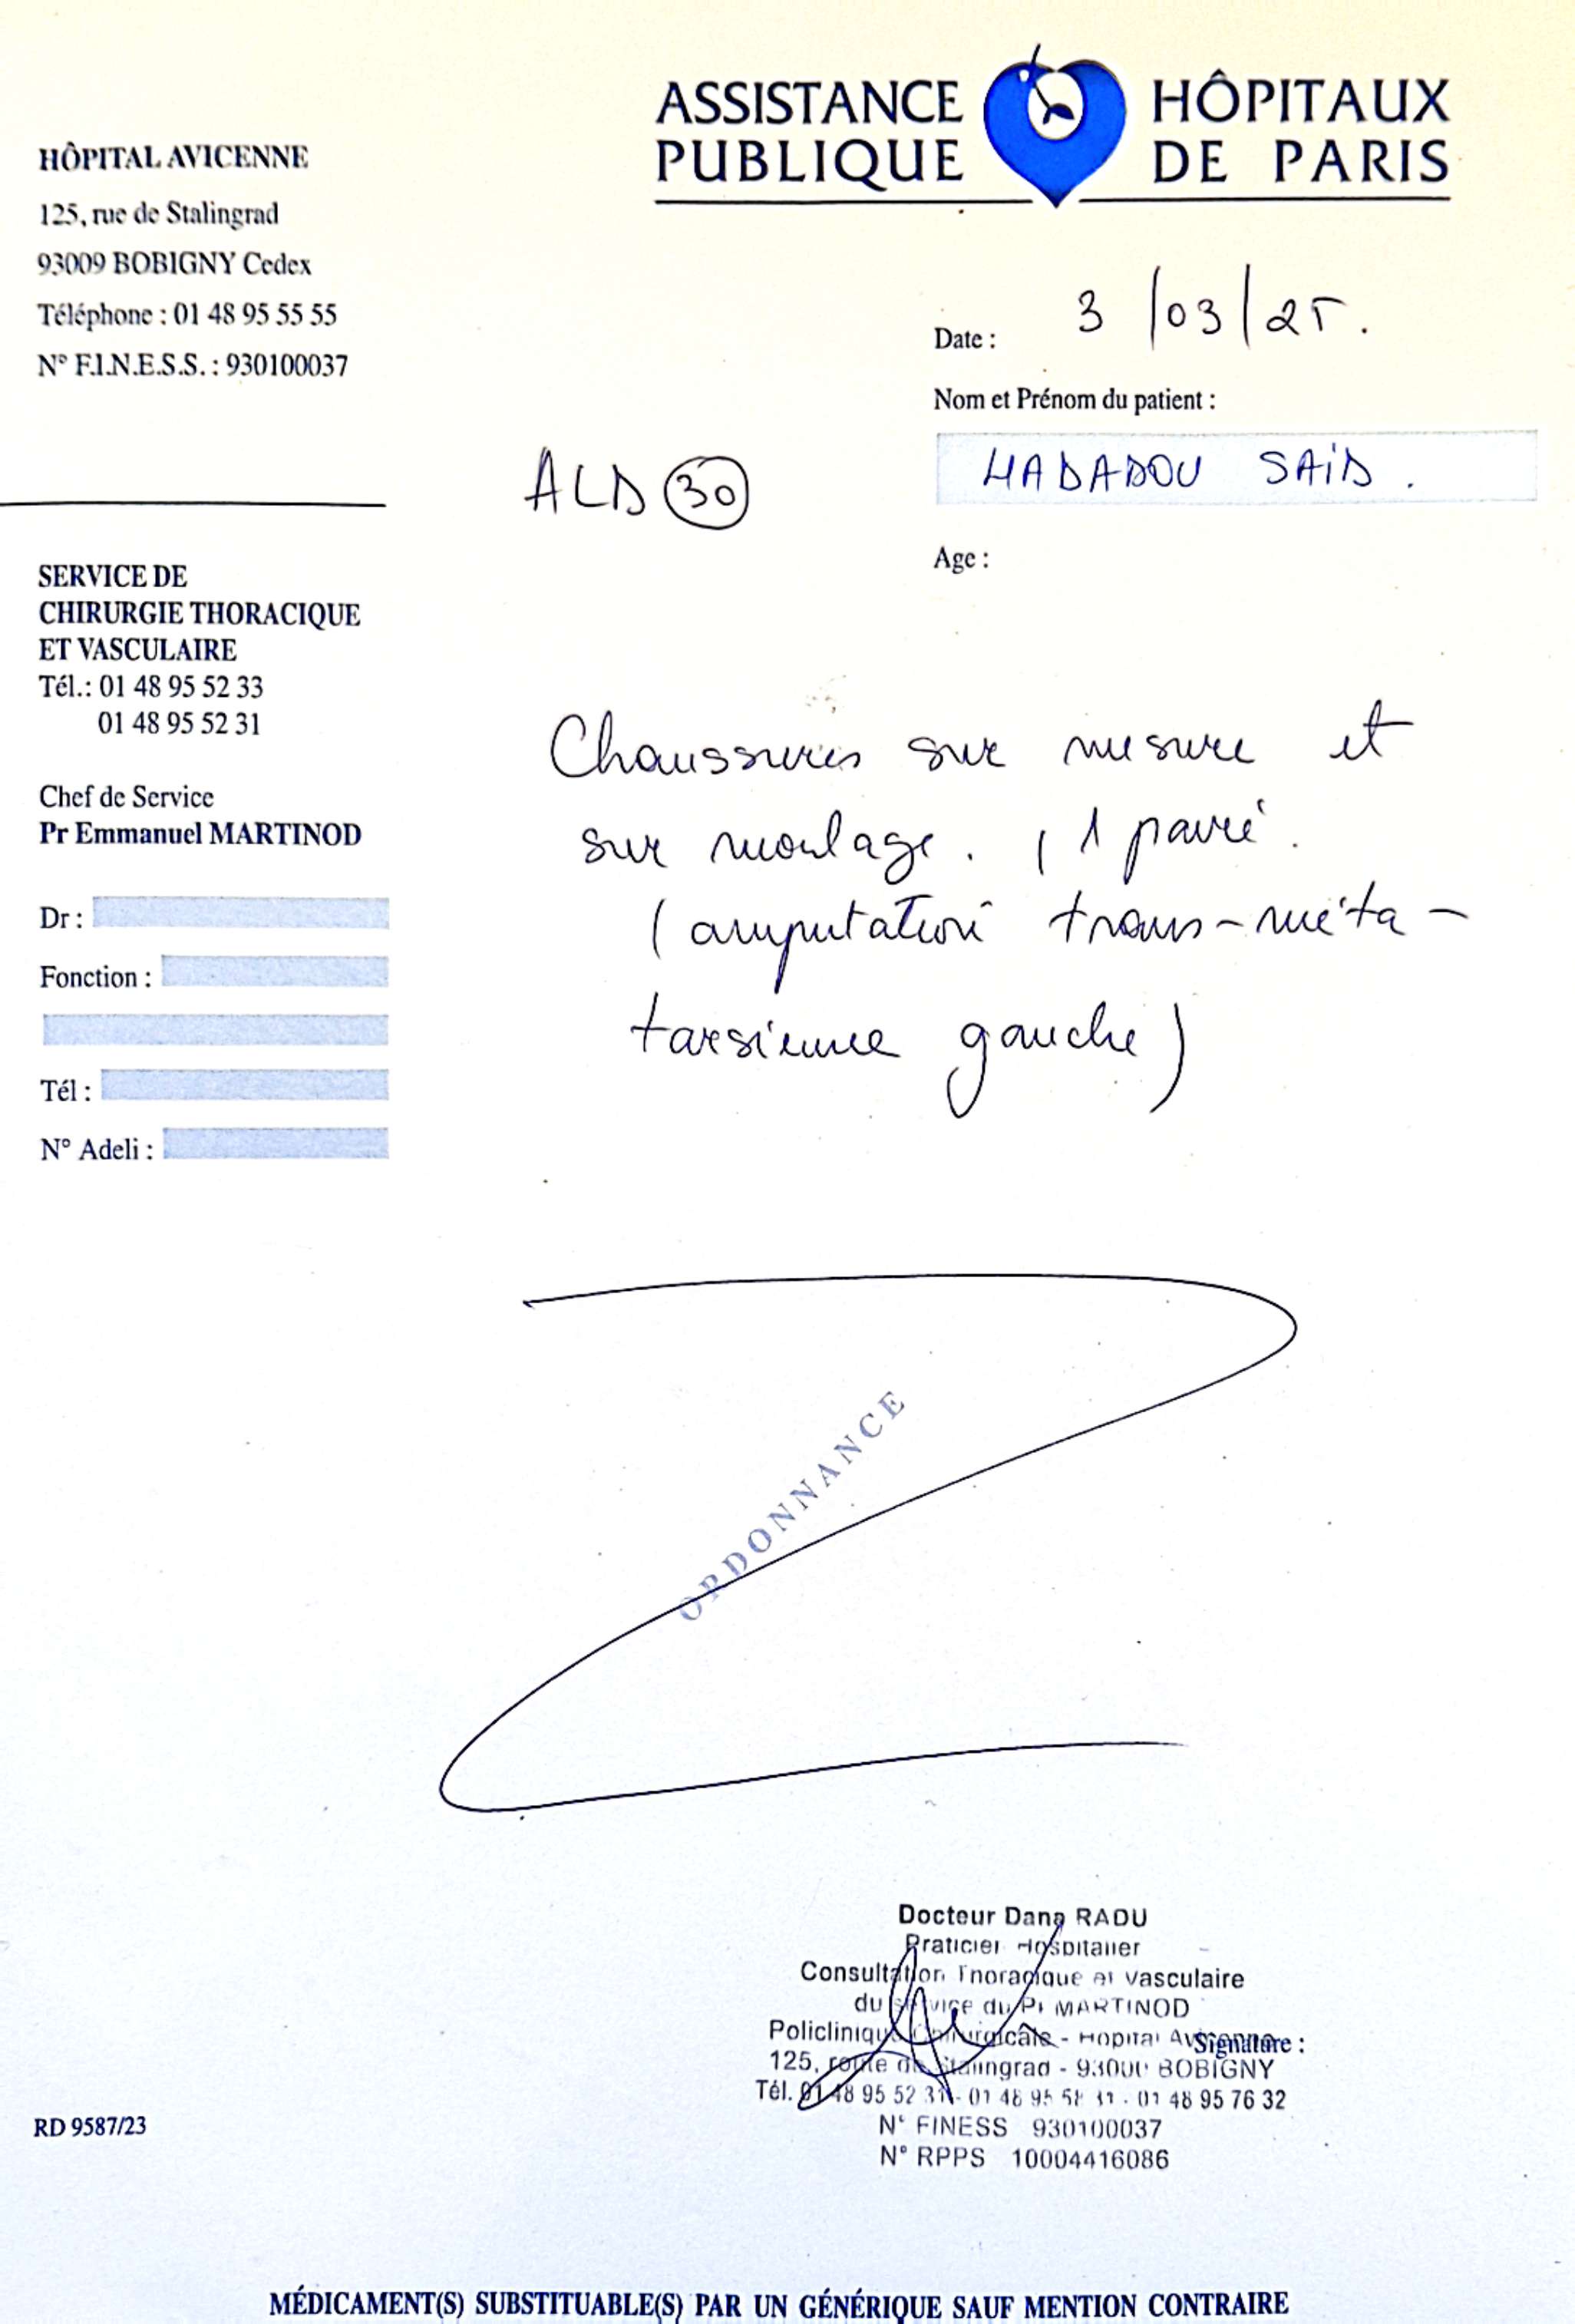 ASSISTANCE PUBLIQUE HÔPITAUX DE PARIS
HÔPITAL AVICENNE
125, rue de Stalingrad
93009 BOBIGNY Cedex
Téléphone : 01 48 95 55 55
N° F.I.N.E.S.S. : 930100037
Date : 3/03/25.
Nom et Prénom du patient :
HADADOU SAID.
ALD 30
Age :
SERVICE DE
CHIRURGIE THORACIQUE
ET VASCULAIRE
Tél.: 01 48 95 52 33
01 48 95 52 31
Chef de Service
Pr Emmanuel MARTINOD
Dr :
Fonction :
Tél :
N° Adeli :
Chaussures sur mesure et
sur moulage. , 1 paire.
(amputation trans-méta-
tarsienne gauche)
ORDONNANCE
Docteur Dana RADU
Praticien Hospitalier
Consultation Thoracique et Vasculaire
du Service du Pr MARTINOD
Policlinique Chirurgicale - Hopital Avicenne
Signature :
125, route de Stalingrad - 93000 BOBIGNY
Tél. 01 48 95 52 31 - 01 48 95 58 31 - 01 48 95 76 32
N° FINESS 930100037
N° RPPS 10004416086
RD 9587/23
MÉDICAMENT(S) SUBSTITUABLE(S) PAR UN GÉNÉRIQUE SAUF MENTION CONTRAIRE